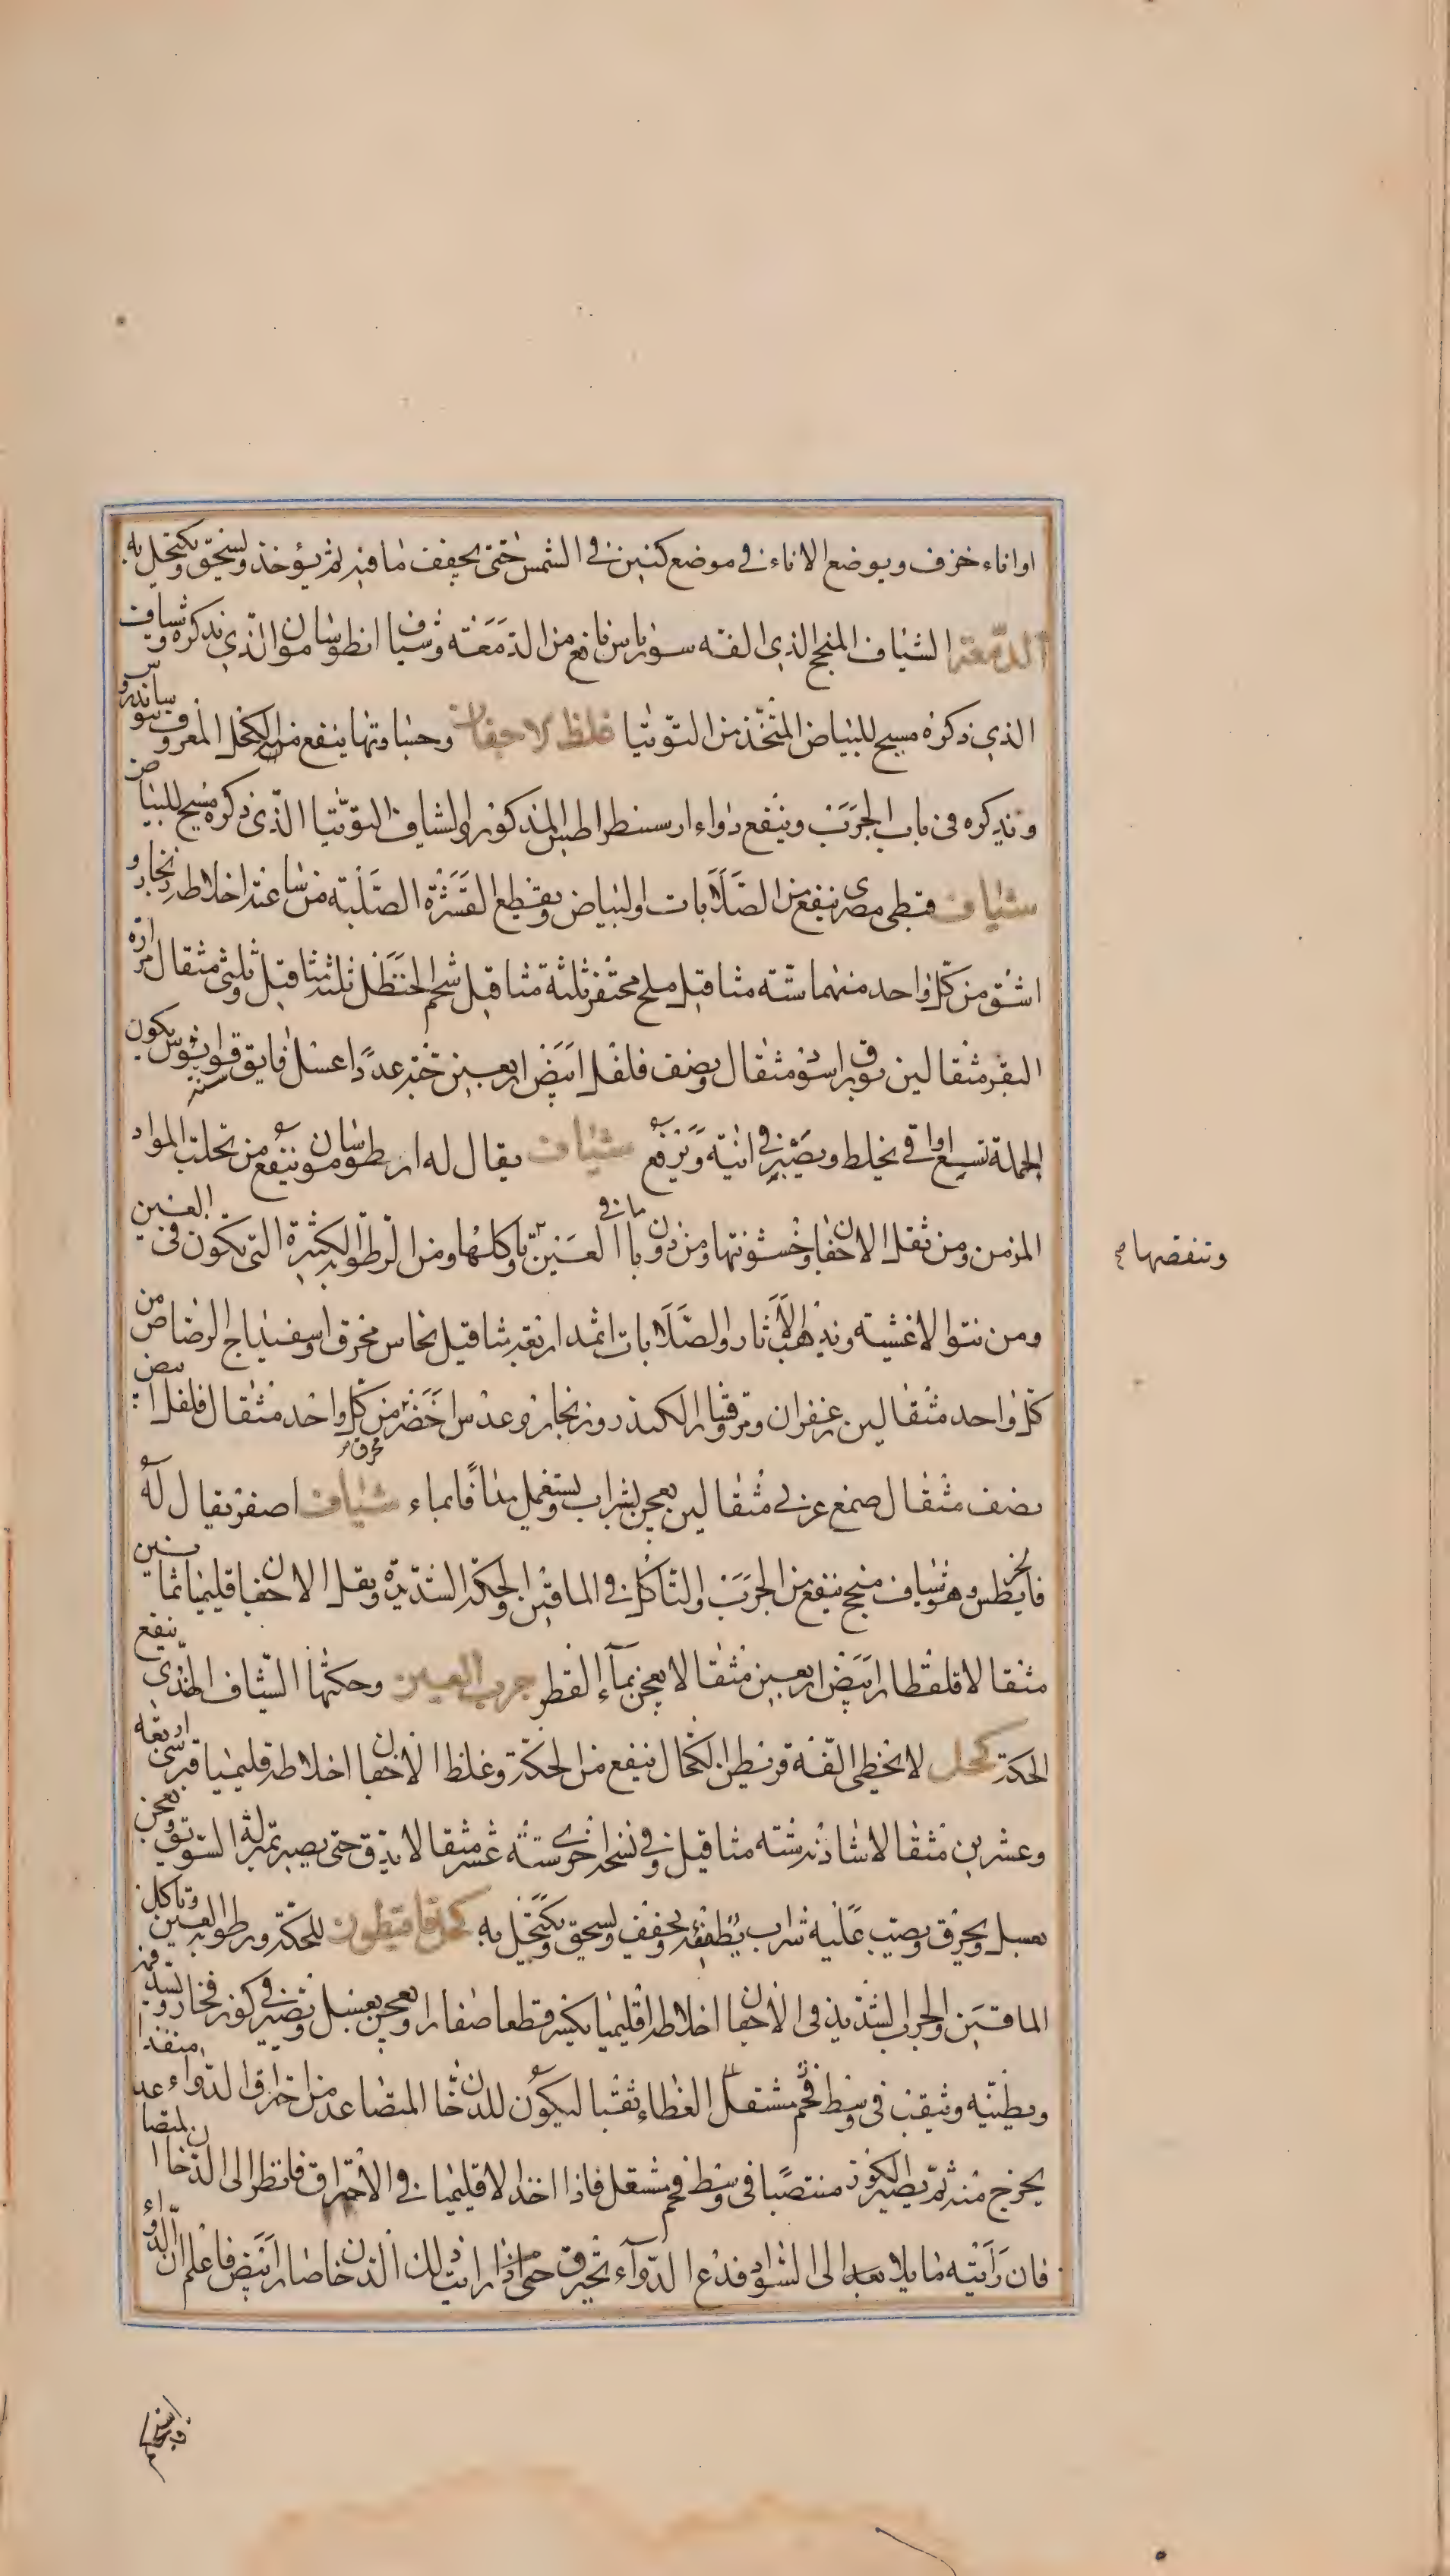 او اناء خزف ويوضع الاناء في موضع كنين في الشمس حتى يجفف ما فيه ثم يؤخذ ويسحق ويكتحل به
الدمعة الشياف المنجح الذي الفه سورياس نافع من الدمعة وشياف انطوسامون الذي نذكره وشياف
الذي ذكره مسيح للبياض المتخذ من التوتيا غلظ الاجفان وحساوتها ينفع منه الكحل المعروف بسوساندرو
ونذكره في باب الجرب وينفع دواء ارسسطراطيس المذكور والشياف التوتيا الذي ذكره مسيح للبياض
شياف قبطي مصري ينفع من الصلابات والبياض ويقطع القشرة الصلبة من ساعته اخلاطه زنجار و
اشق من كل واحد منهما ستة مثاقيل ملح محتفر ثلثة مثاقيل شحم الحنظل ثلثة مثاقيل وثلثي مثقال مرارة
البقر مثقالين نوفراسيون مثقال ونصف فلفل ابيض اربعين حبة عددا عسل فايق قوانوس يكون
الجملة تسع اواقي يخلط ويصير في انية ويرفع شياف يقال له ارطوسامون ينفع من تحلب المواد
المزمن ومن ثقل الاجفان وخشونتها ومن ذوبان ما في العينين وتاكلها ومن الرطوبة الكثيرة التي تكون في العين
وتنقصها صح
ومن نتوا لاغشية ويذهب الاثار والصلابات اثمد اربعة مثاقيل نحاس محرق واسفيداج الرصاص من
كل واحد مثقالين زعفران ومر وقشار الكندر وزنجار وعدس اخضر من كل واحد مثقال فلفل ابيض
نصف مثقال صمغ عربي مثقالين يعجن بشراب ويستعمل مدافا بماء شياف اصفر يقال له
فانخريطس وهو شياف منجح ينفع من الجرب والتاكل في الماقين والحكة الشديدة وثقل الاجفان اقليميا ثمانين
مثقالا قلقطار ابيض اربعين مثقالا يعجن بماء القطر جرب العين وحكتها الشياف الهندي ينفع
الحكة كحل لا يخطي الفه قرنيطن الكحال ينفع من الحكة وغلظ الاجفان اخلاطه قليميا قبرسي اربعة
وعشرين مثقالا شاذنه ستة مثاقيل وفي نسخة اخرى ستة عشر مثقالا يدق حتى يصير بمنزلة السويق ويعجن
بعسل ويحرق ويصب عليه شراب يطفئه ويجفف ويسحق ويكتحل به كحل فاميطون للحكة ورطوبة العين وتاكل
الماقين والجرب الشديد في الاجفان اخلاطه اقليميا يكسر قطعا صغارا ويعجن بعسل ويصير في كوز فخار ويسد فمه
ويطينه وثيقب في وسط الغطاء ثقبا ليكون للدخان المتصاعد من احراق الدواء منفذا
يخرج منه ثم يصير الكوز منتصبا في وسط فحم مشتعل فاذا اخذ الاقليميا في الاحتراق فانظر الى الدخان المتصا
فان رايته مايلا بعد الى السواد فدع الدواء يحرق حتى اذا رايت ذلك الدخان صار ابيض فاعلم ان الدواء